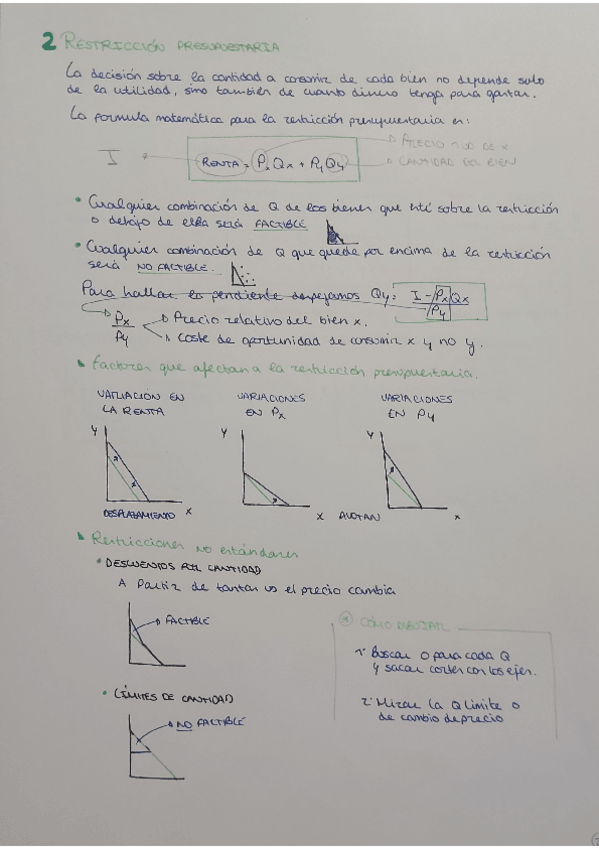 2 RESTRICCIÓN PRESUPUESTARIA
La decisión sobre la cantidad a consumir de cada bien no depende solo
de la utilidad, sino también de cuanto dinero tenga para gastar.
La formula matemática para la restricción presupuestaria es:
I RENTA = Px Qx + Py Qy
PRECIO DE X
CANTIDAD DEL BIEN
• Cualquier combinación de Q de los bienes que esté sobre la restricción
o debajo de ella será FACTIBLE
• Cualquier combinación de Q que quede por encima de la restricción
será NO FACTIBLE.
Para hallar la pendiente despejamos Qy = I - Px Qx / Py
Px / Py Precio relativo del bien x.
Coste de oportunidad de consumir x y no y.
Factores que afectan a la restricción presupuestaria.
VARIACIÓN EN LA RENTA
VARIACIONES EN Px
VARIACIONES EN Py
Y Y Y
DESPLAZAMIENTO X X PIVOTAN X
Restricciones no estándares
• DESCUENTOS POR CANTIDAD
A Partir de tantas us el precio cambia
FACTIBLE
CÓMO DIBUJAR
1º Buscar 0 para cada Q
y sacar cortes con los ejes.
2º Mirar la Q limite o
de cambio de precio
• LÍMITES DE CANTIDAD
NO FACTIBLE